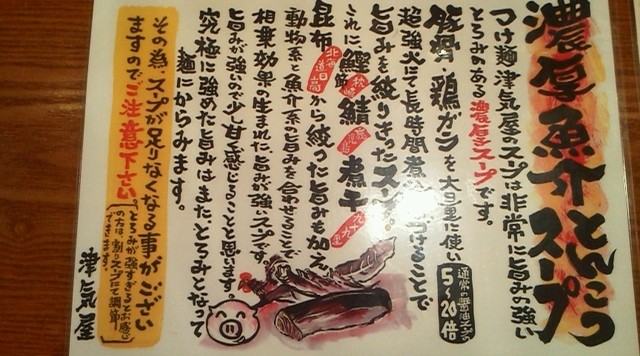 濃厚魚介とんこつスープ
つけ麺津気屋のスープは非常に旨みの強い
とろみのある濃厚スープです。
豚骨、鶏ガラを大量に使い
通常の醤油スープの
5~20倍
超強火にて長時間煮つけることで
旨みを絞りきったスープ。
これに鰹節 枕崎 鯖 鹿児島 煮干 九十九里
昆布 北海道日高 から絞った旨みも加え、
動物系と魚介系の旨みを合わせることで
相乗効果の生まれた、旨みが強いスープです。
旨みが強いので少し甘く感じることと思います。
究極に強めた旨みはまた、とろみとなって
麺にからみます。
その為、スープが足りなくなる事がござい
ますのでご注意下さい。
とろみが強すぎるとお感じ
の方は、割りスープにて調節
できます。
津気屋